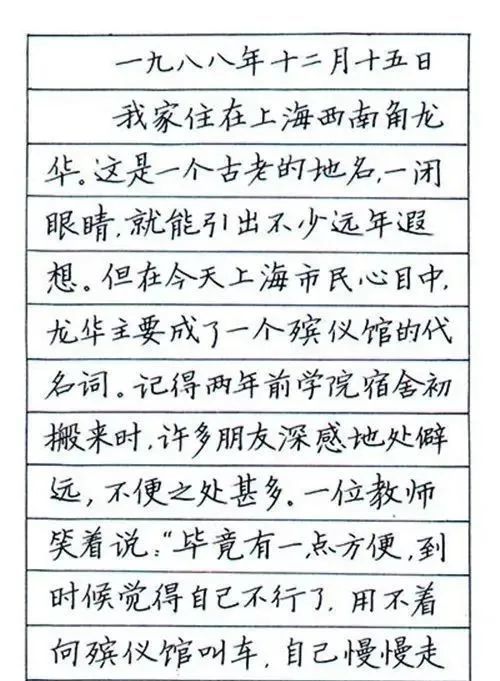 一九八八年十二月十五日
我家住在上海西南角龙
华。这是一个古老的地名,一闭
眼睛,就能引出不少远年遐
想。但在今天上海市民心目中,
龙华主要成了一个殡仪馆的代
名词。记得两年前学院宿舍初
搬来时,许多朋友深感地处僻
远,不便之处甚多。一位教师
笑着说:“毕竟有一点方便,到
时候觉得自己不行了,用不着
向殡仪馆叫车,自己慢慢走